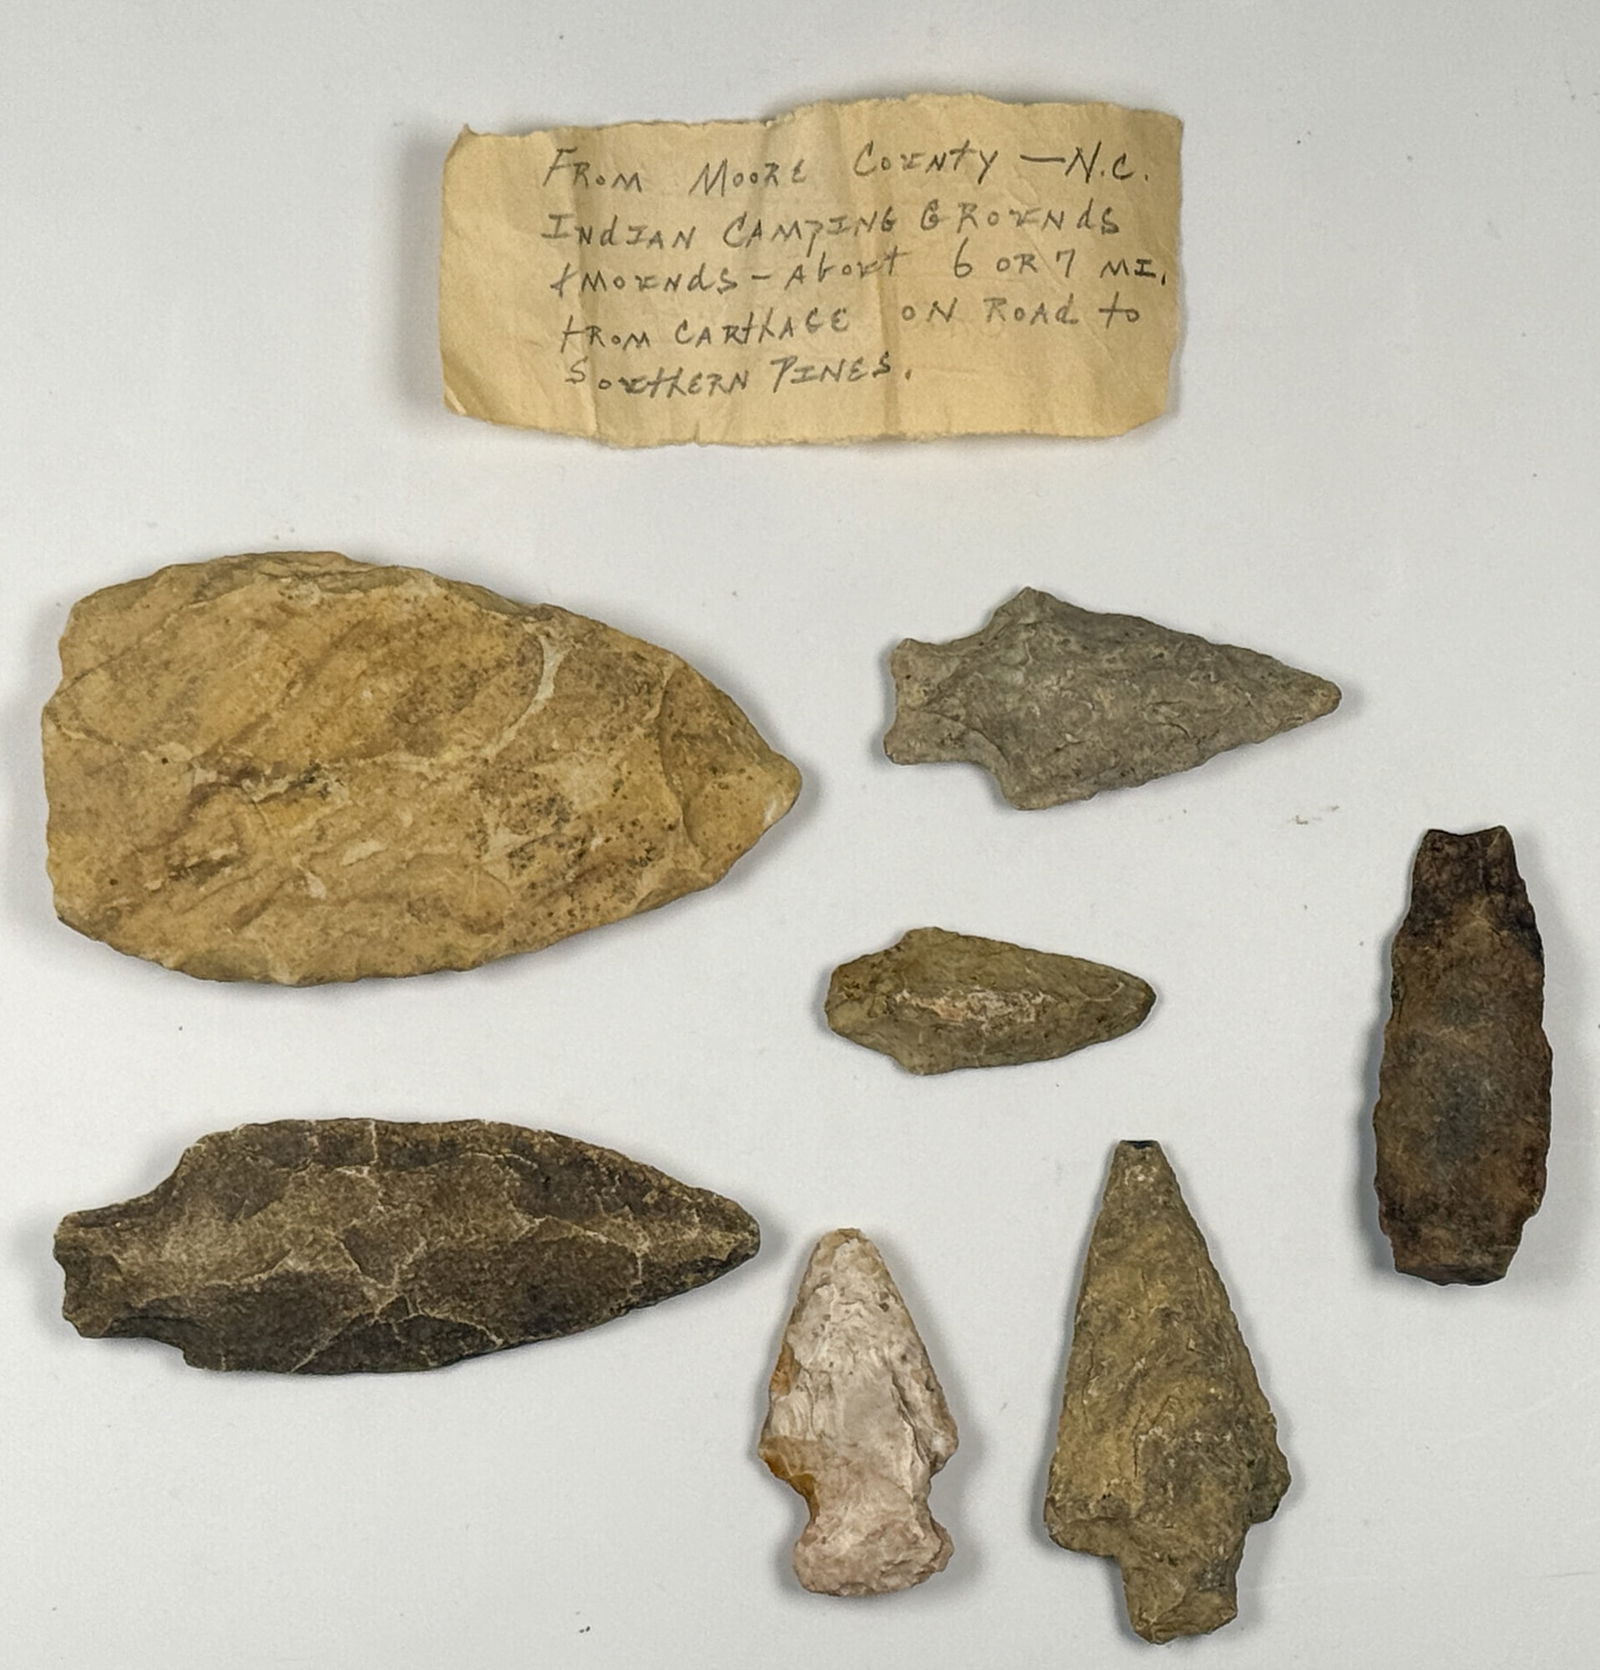 FROM MOORE COUNTY — N.C.
INdIAN CAMPING GROUNds
& MOUNds - AboUt 6 OR 7 MI.
FROM CARthAGE ON ROAd to
SOUthERN PINES.